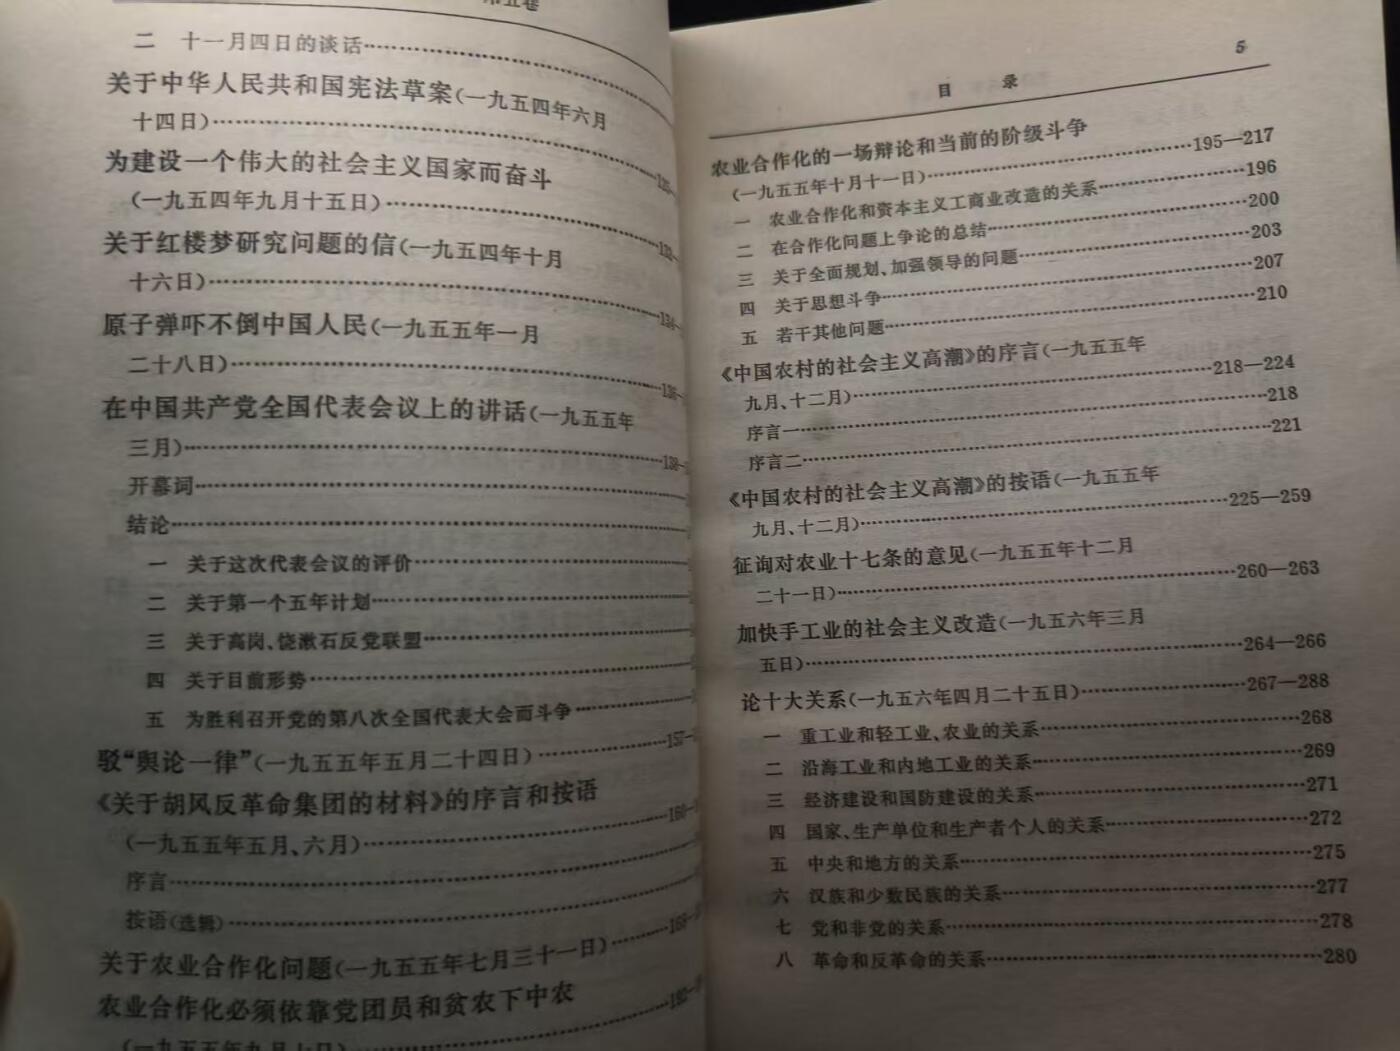 第五卷
二 十一月四日的谈话……
关于中华人民共和国宪法草案(一九五四年六月
十四日)……
为建设一个伟大的社会主义国家而奋斗
(一九五四年九月十五日)……133—
关于红楼梦研究问题的信(一九五四年十月
十六日)……134—
原子弹吓不倒中国人民(一九五五年一月
二十八日)……136—
在中国共产党全国代表会议上的讲话(一九五五年
三月)……138—
开幕词……
结论……
一 关于这次代表会议的评价……
二 关于第一个五年计划……
三 关于高岗、饶漱石反党联盟……
四 关于目前形势……
五 为胜利召开党的第八次全国代表大会而斗争……
驳“舆论一律”(一九五五年五月二十四日)……157—
《关于胡风反革命集团的材料》的序言和按语
(一九五五年五月、六月)……160—
序言……
按语(选辑)……
关于农业合作化问题(一九五五年七月三十一日)……168—
农业合作化必须依靠党团员和贫农下中农
(一九五五年九月七日)……192—
目 录 5
农业合作化的一场辩论和当前的阶级斗争
(一九五五年十月十一日)……195—217
一 农业合作化和资本主义工商业改造的关系……196
二 在合作化问题上争论的总结……200
三 关于全面规划、加强领导的问题……203
四 关于思想斗争……207
五 若干其他问题……210
《中国农村的社会主义高潮》的序言(一九五五年
九月、十二月)……218—224
序言一……218
序言二……221
《中国农村的社会主义高潮》的按语(一九五五年
九月、十二月)……225—259
征询对农业十七条的意见(一九五五年十二月
二十一日)……260—263
加快手工业的社会主义改造(一九五六年三月
五日)……264—266
论十大关系(一九五六年四月二十五日)……267—288
一 重工业和轻工业、农业的关系……268
二 沿海工业和内地工业的关系……269
三 经济建设和国防建设的关系……271
四 国家、生产单位和生产者个人的关系……272
五 中央和地方的关系……275
六 汉族和少数民族的关系……277
七 党和非党的关系……278
八 革命和反革命的关系……280